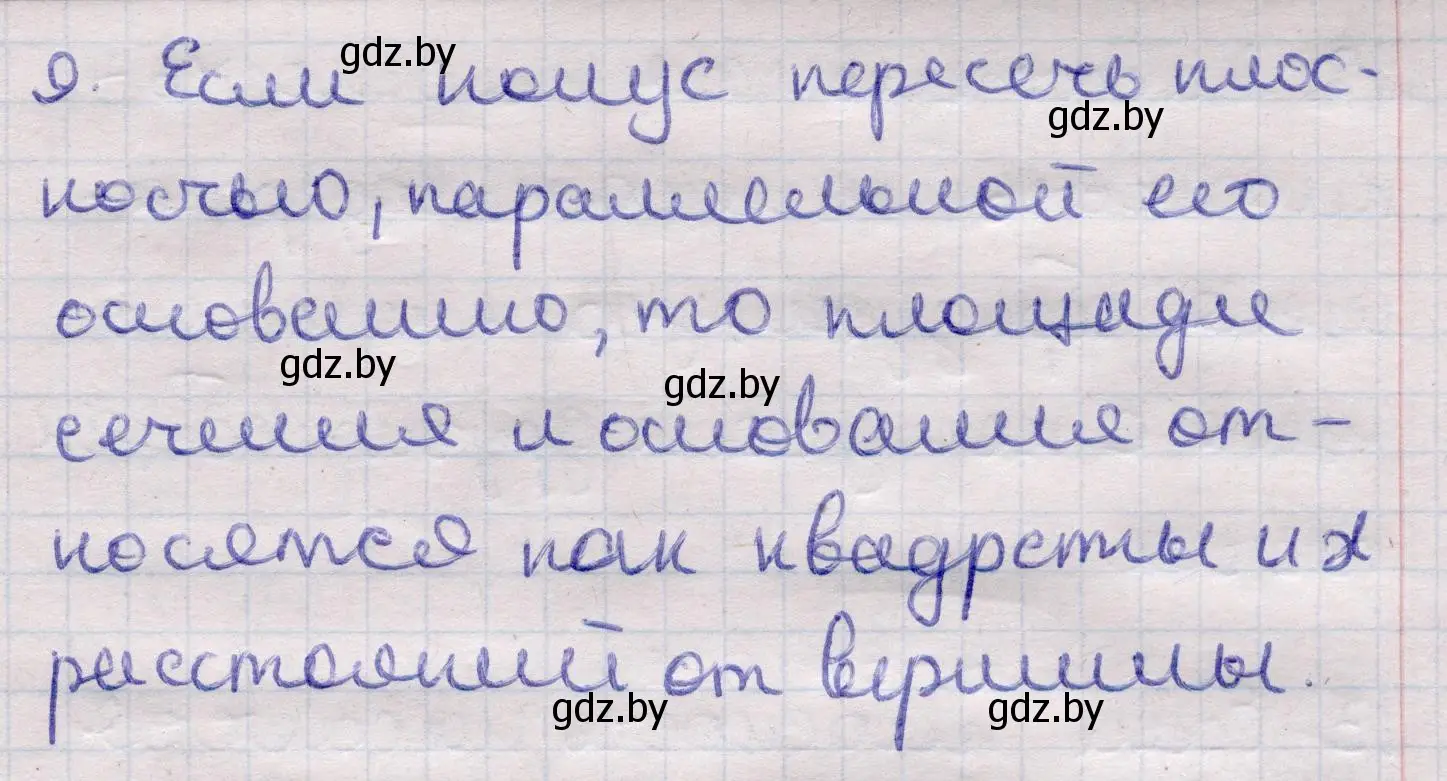 9. Если конус пересечь плос-
костью, параллельной его
основанию, то площади
сечения и основания от-
носятся как квадраты их
расстояний от вершины.
gdz.by
gdz.by
gdz.by
gdz.by
gdz.by
gdz.by